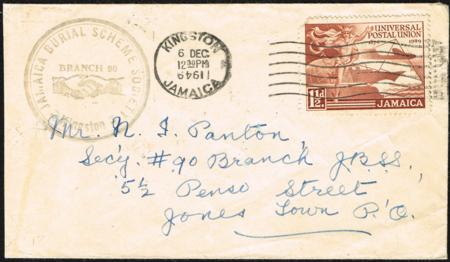 JAMAICA BURIAL SCHEME SOCIETY
BRANCH 90
Kingston
KINGSTON
6 DEC
12 30PM
1949
JAMAICA
UNIVERSAL
POSTAL UNION
1949
1½d
JAMAICA
Mr. N. I. Panton,
Sec'y. #90 Branch J.B.S.S.,
5½ Penso Street
Jones Town P.O.